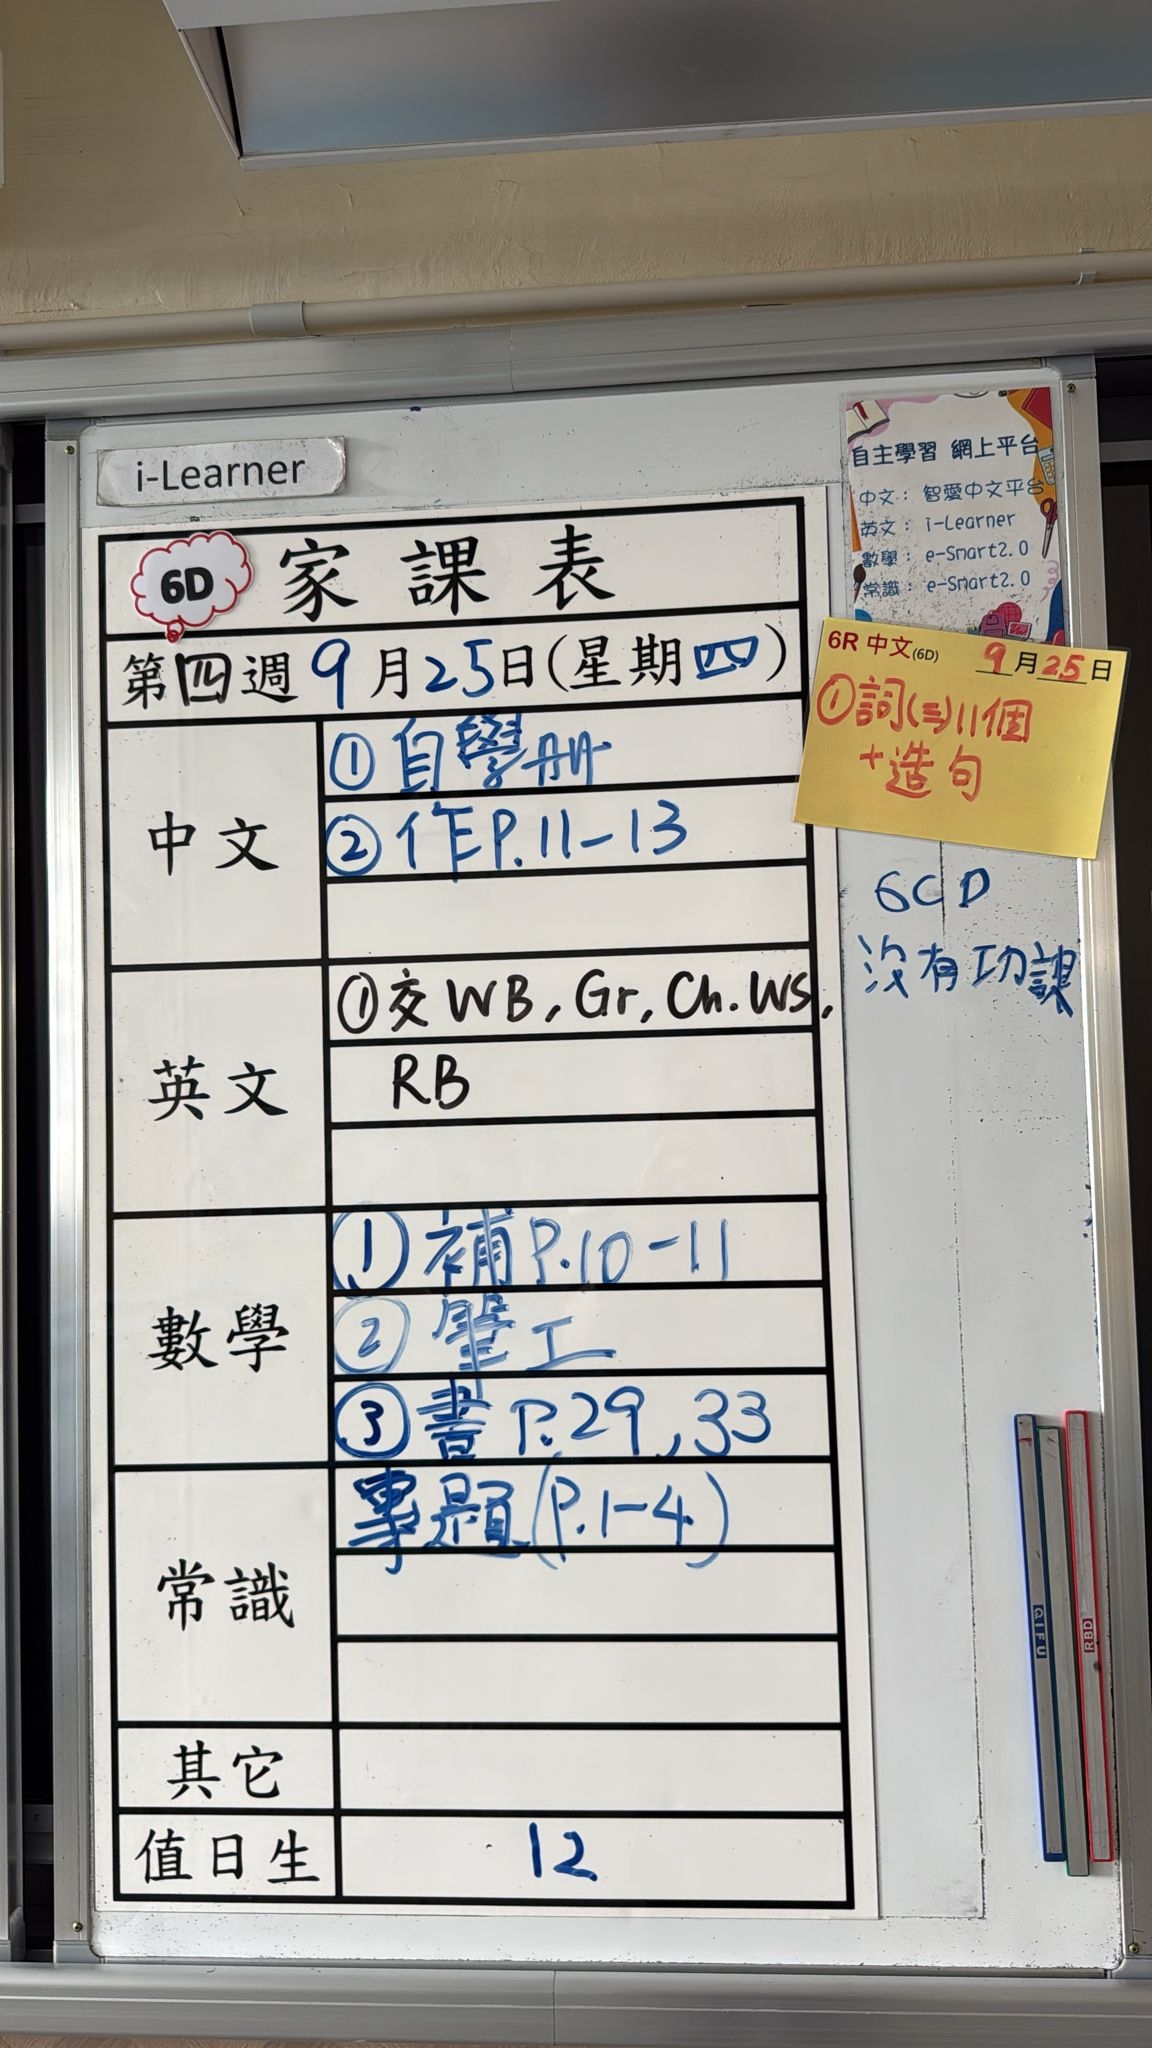 i-Learner
6D 家課表
第四週 9月25日(星期四)
中文
① 自學册
② 作P.11-13
英文
① 交 WB, Gr, Ch. WS,
RB
數學
① 補P.10-11
② 筆工
③ 書P.29, 33
常識
專題(P.1-4)
其它
值日生
12
自主學習 網上平台
中文： 智愛中文平台
英文： i-Learner
數學： e-Smart2.0
常識： e-Smart2.0
6R 中文(6D) 9月25日
① 詞(三)11個
+造句
6CD
沒有功課
QIFU
RBD